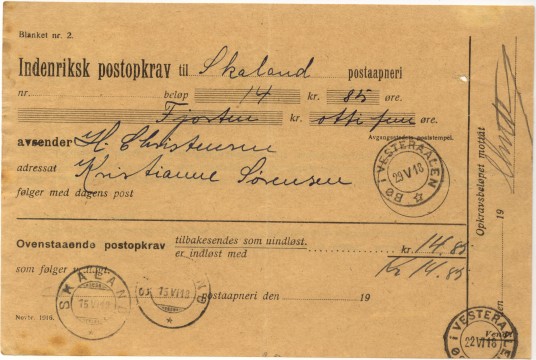 Blanket nr. 2.
Indenriksk postopkrav til Skaland postaapneri
nr. beløp 14 kr. 85 øre.
Fjorten kr. otti fem øre.
Avgangsstedets poststempel.
avsender H. Christensen
adressat Kristianne Sørensen
følger med dagens post
BØ I VESTERAALEN
29 V 18
Ovenstaaende postopkrav tilbakesendes som uindløst.
er indløst med kr. 14.85
som følger Kr 14.85
SKALAND
15 VI 18
15 VI 18
postaapneri den 19
Novbr. 1916.
Opkravsbeløpet motpat
den 19
BØ I VESTERAALE
22 VI 18